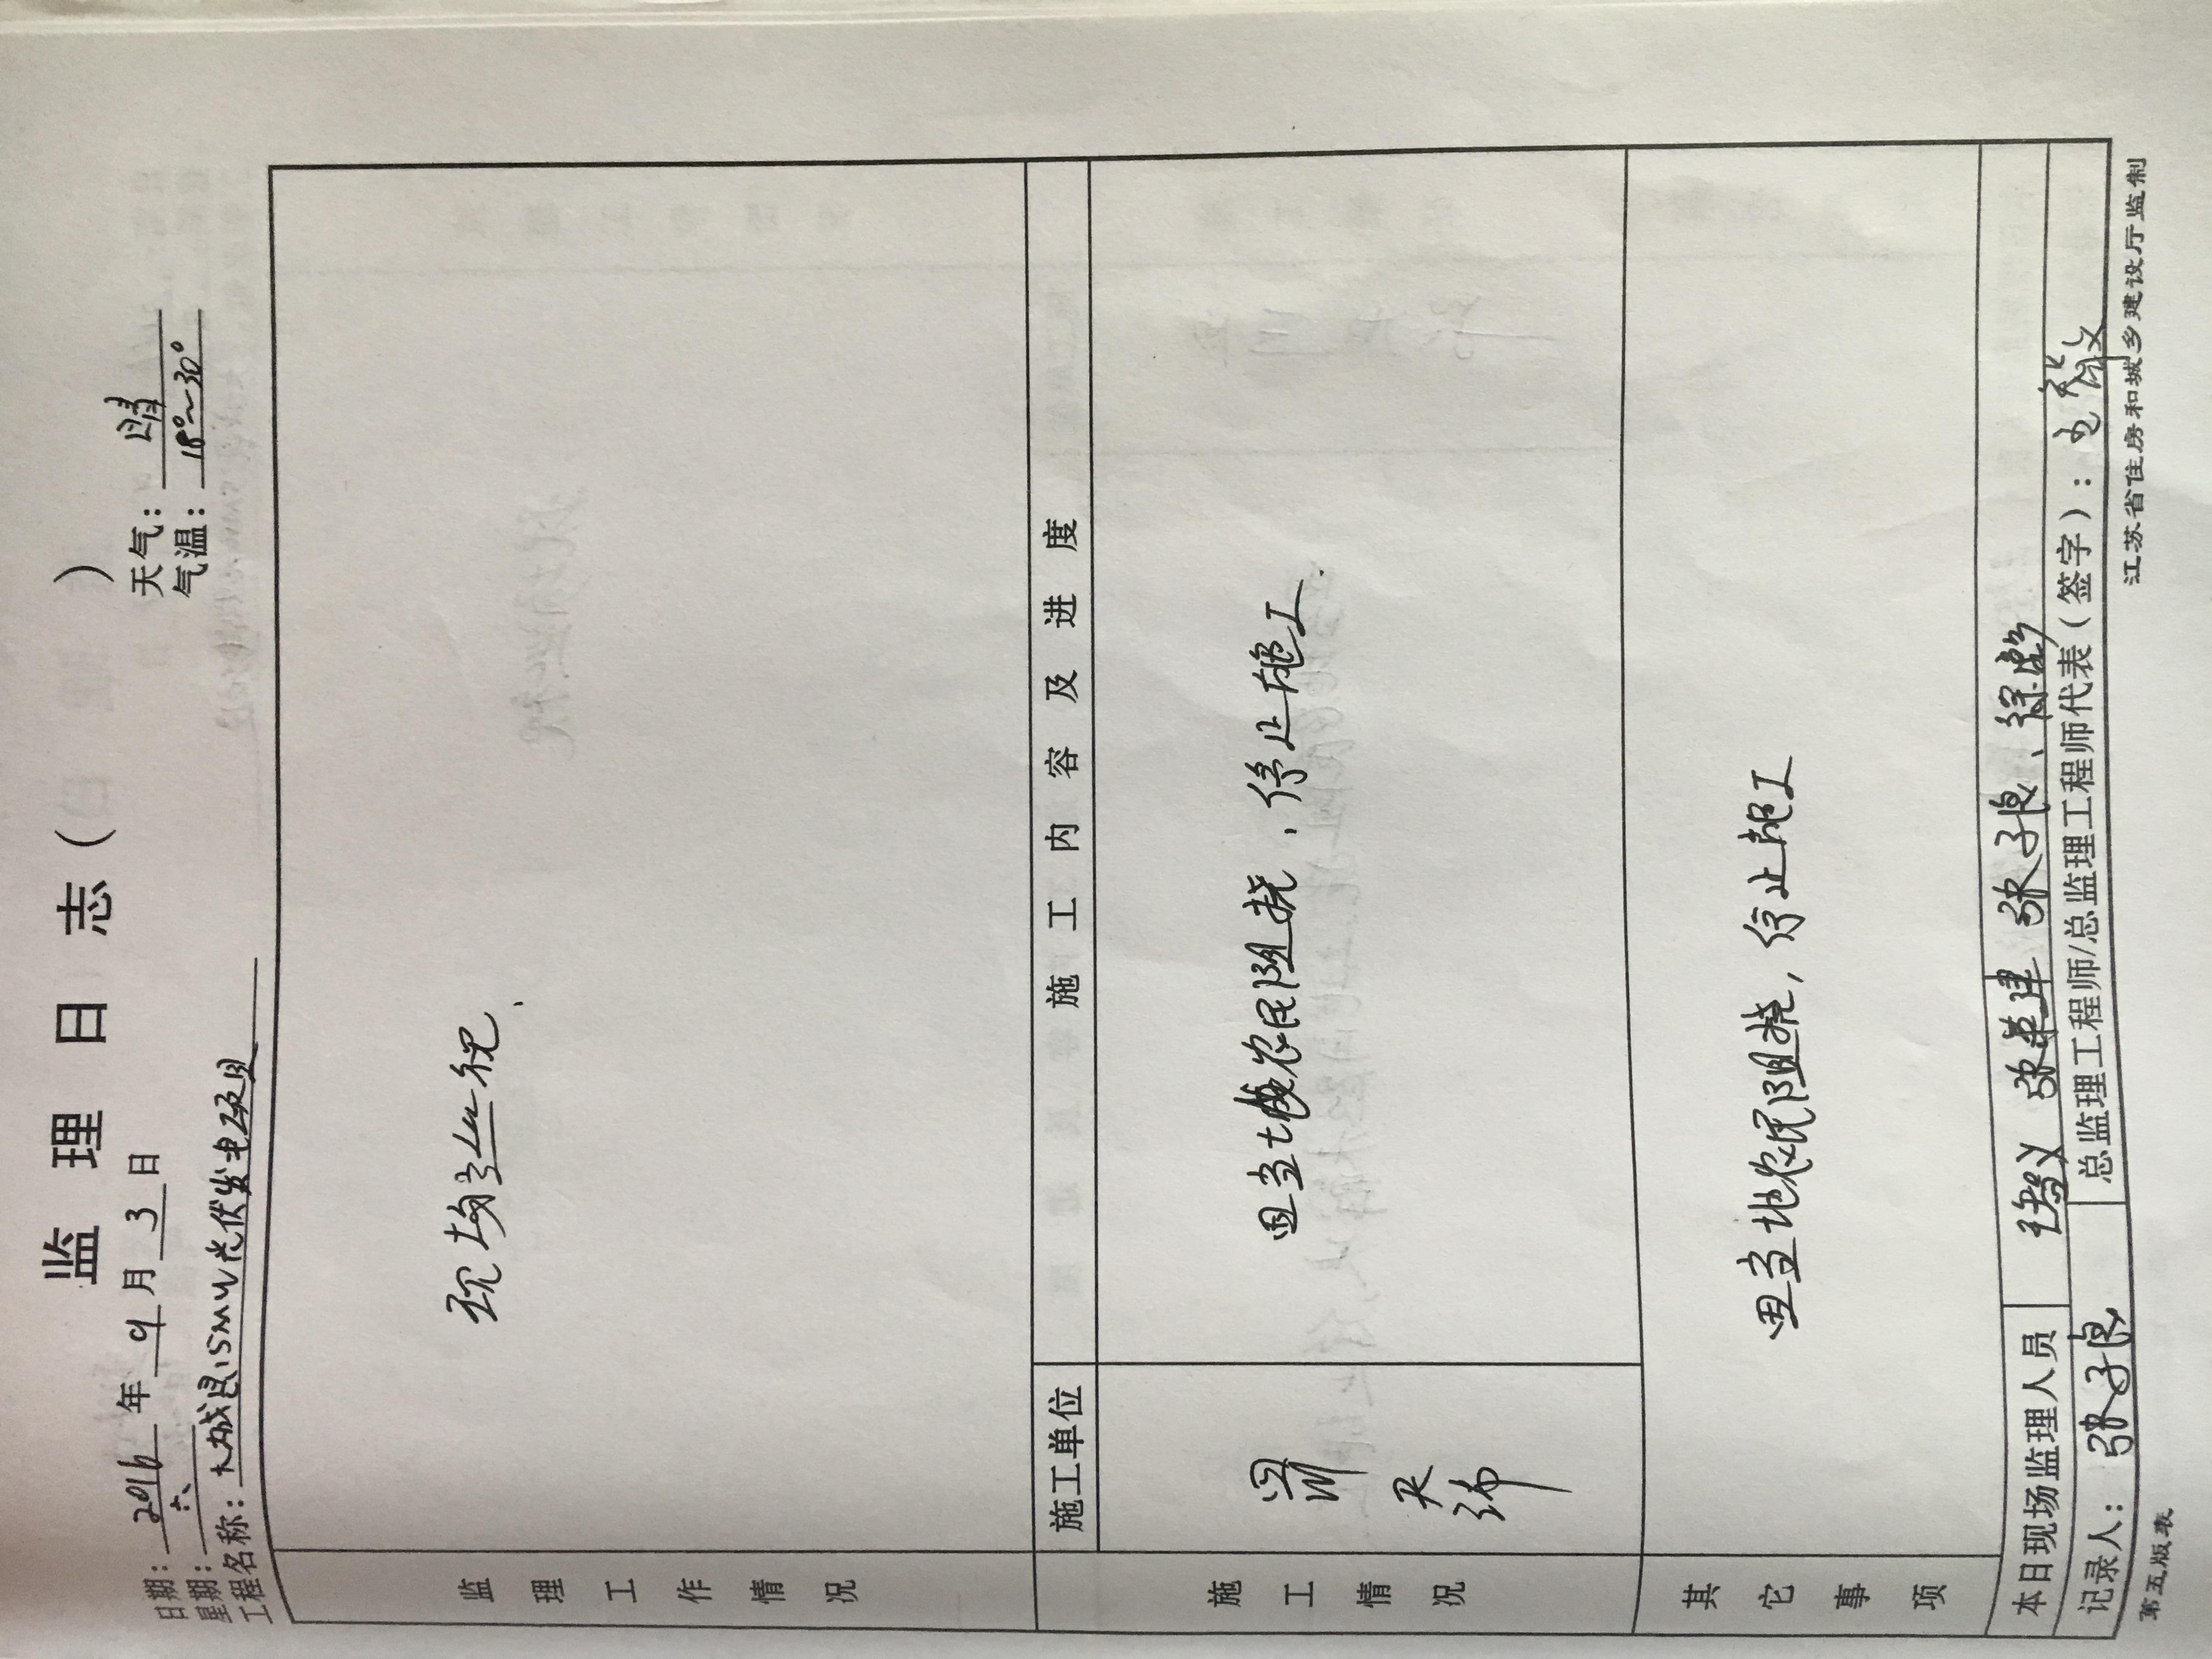 监理日志（ ）
日期：2016年9月3日 天气：晴
星期：六 气温：18°~30°
工程名称：大成良15MW光伏发电项目
监理工作情况
现场巡视.
施工单位 施工内容及进度
施工情况
四川
天 因当地农民阻挠，停止施工.
其它事项
因当地农民阻挠，停止施工
本日现场监理人员 张子良、
记录人：张子良 总监理工程师/总监理工程师代表（签字）：
第五版表 江苏省住房和城乡建设厅监制